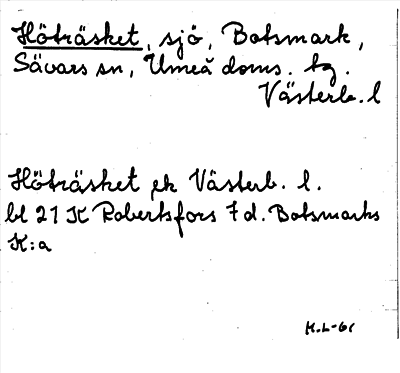 Höträsket, sjö, Botsmark,
Sävars sn, Umeå doms. tg.
Västerb. l
Höträsket ek Västerb. l.
bl 21 K Robertsfors 7 d. Botsmarks
K:a
H.L-61